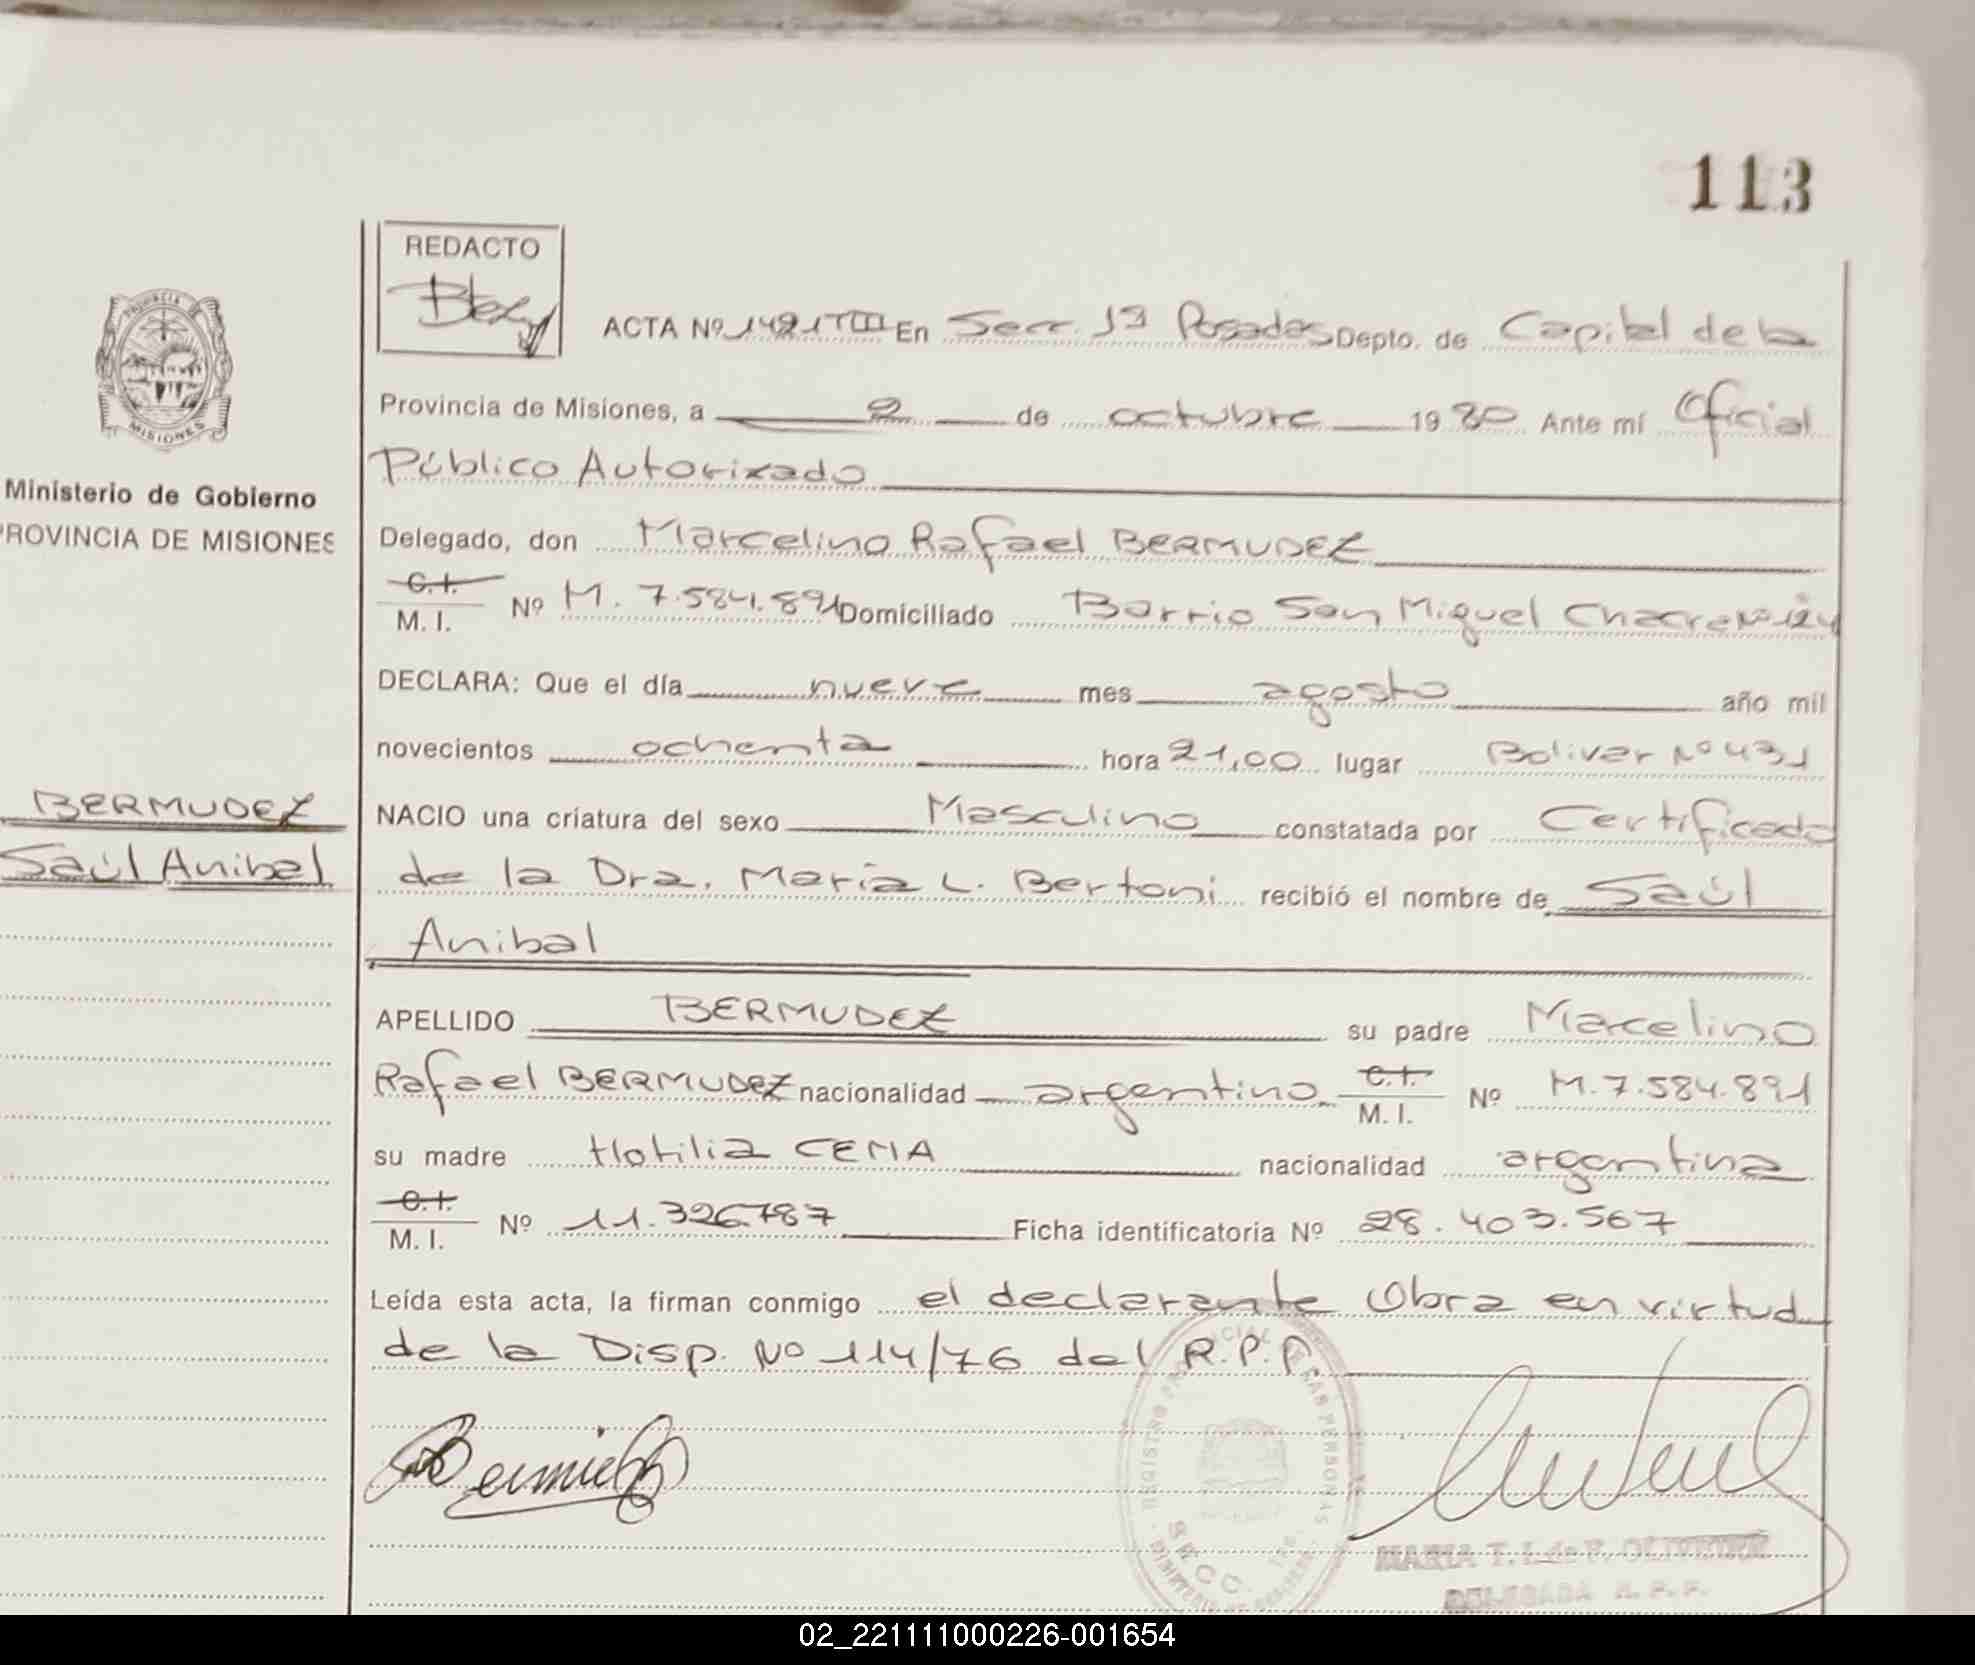 113
REDACTO
ACTA Nº 1421 TIII En Secc. 1ª Posadas Depto. de Capital de la
Provincia de Misiones, a 2 de octubre 1980 Ante mí Oficial
Público Autorizado
PROVINCIA
MISIONES
Ministerio de Gobierno
PROVINCIA DE MISIONES
Delegado, don Marcelino Rafael BERMUDEZ
C.I.
M. I. Nº M. 7.584.891 Domiciliado Barrio San Miguel Chacra Nº 124
DECLARA: Que el día nueve mes agosto año mil
novecientos ochenta hora 21,00 lugar Bolivar Nº 431
BERMUDEZ
Saúl Anibal
NACIO una críatura del sexo Masculino constatada por Certificado
de la Dra. María L. Bertoni recibió el nombre de Saúl
Anibal
APELLIDO BERMUDEZ su padre Marcelino
Rafael BERMUDEZ nacionalidad argentino C.I.
M. I. Nº M.7.584.891
su madre Hotilia CENA nacionalidad argentina
C.I.
M. I. Nº 11.326.787 Ficha identificatoria Nº 28.403.567
Leída esta acta, la firman conmigo el declarante Obra en virtud
de la Disp. Nº 114/76 del R.P.P.
REGISTRO DE LAS PERSONAS
SECC.
MARIA T. I. de F. OLIVEIRA
DELEGADA R. P. P.
02_221111000226-001654